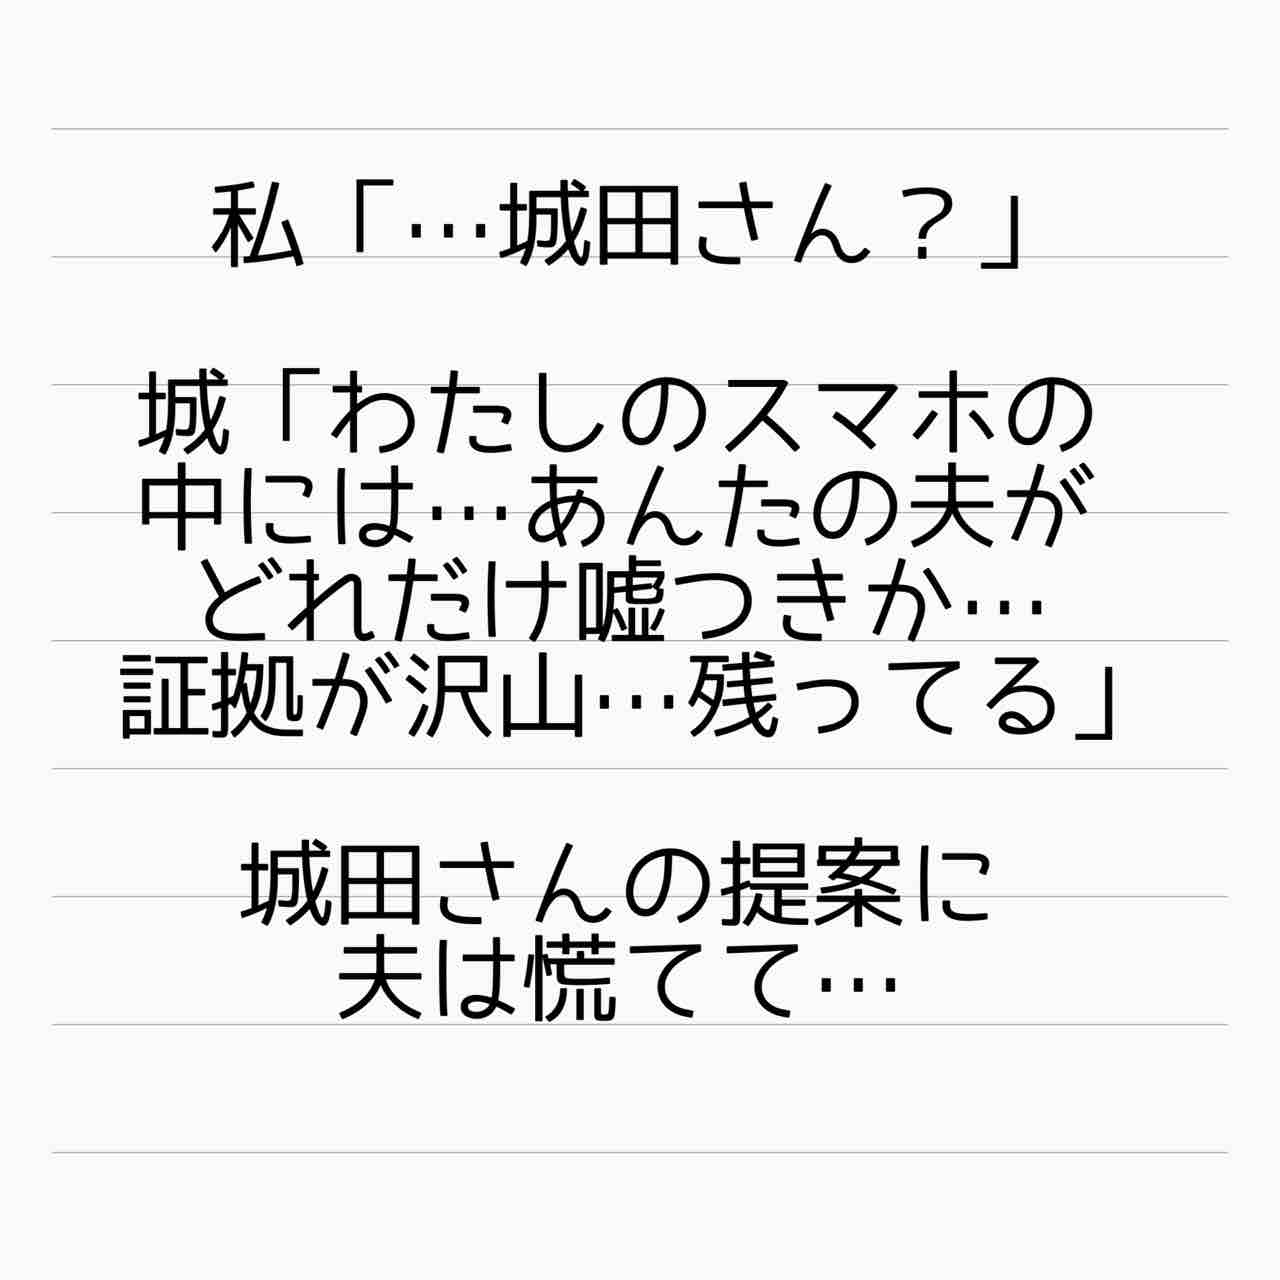 私「…城田さん？」
城「わたしのスマホの
中には…あんたの夫が
どれだけ嘘つきか…
証拠が沢山…残ってる」
城田さんの提案に
夫は慌てて…